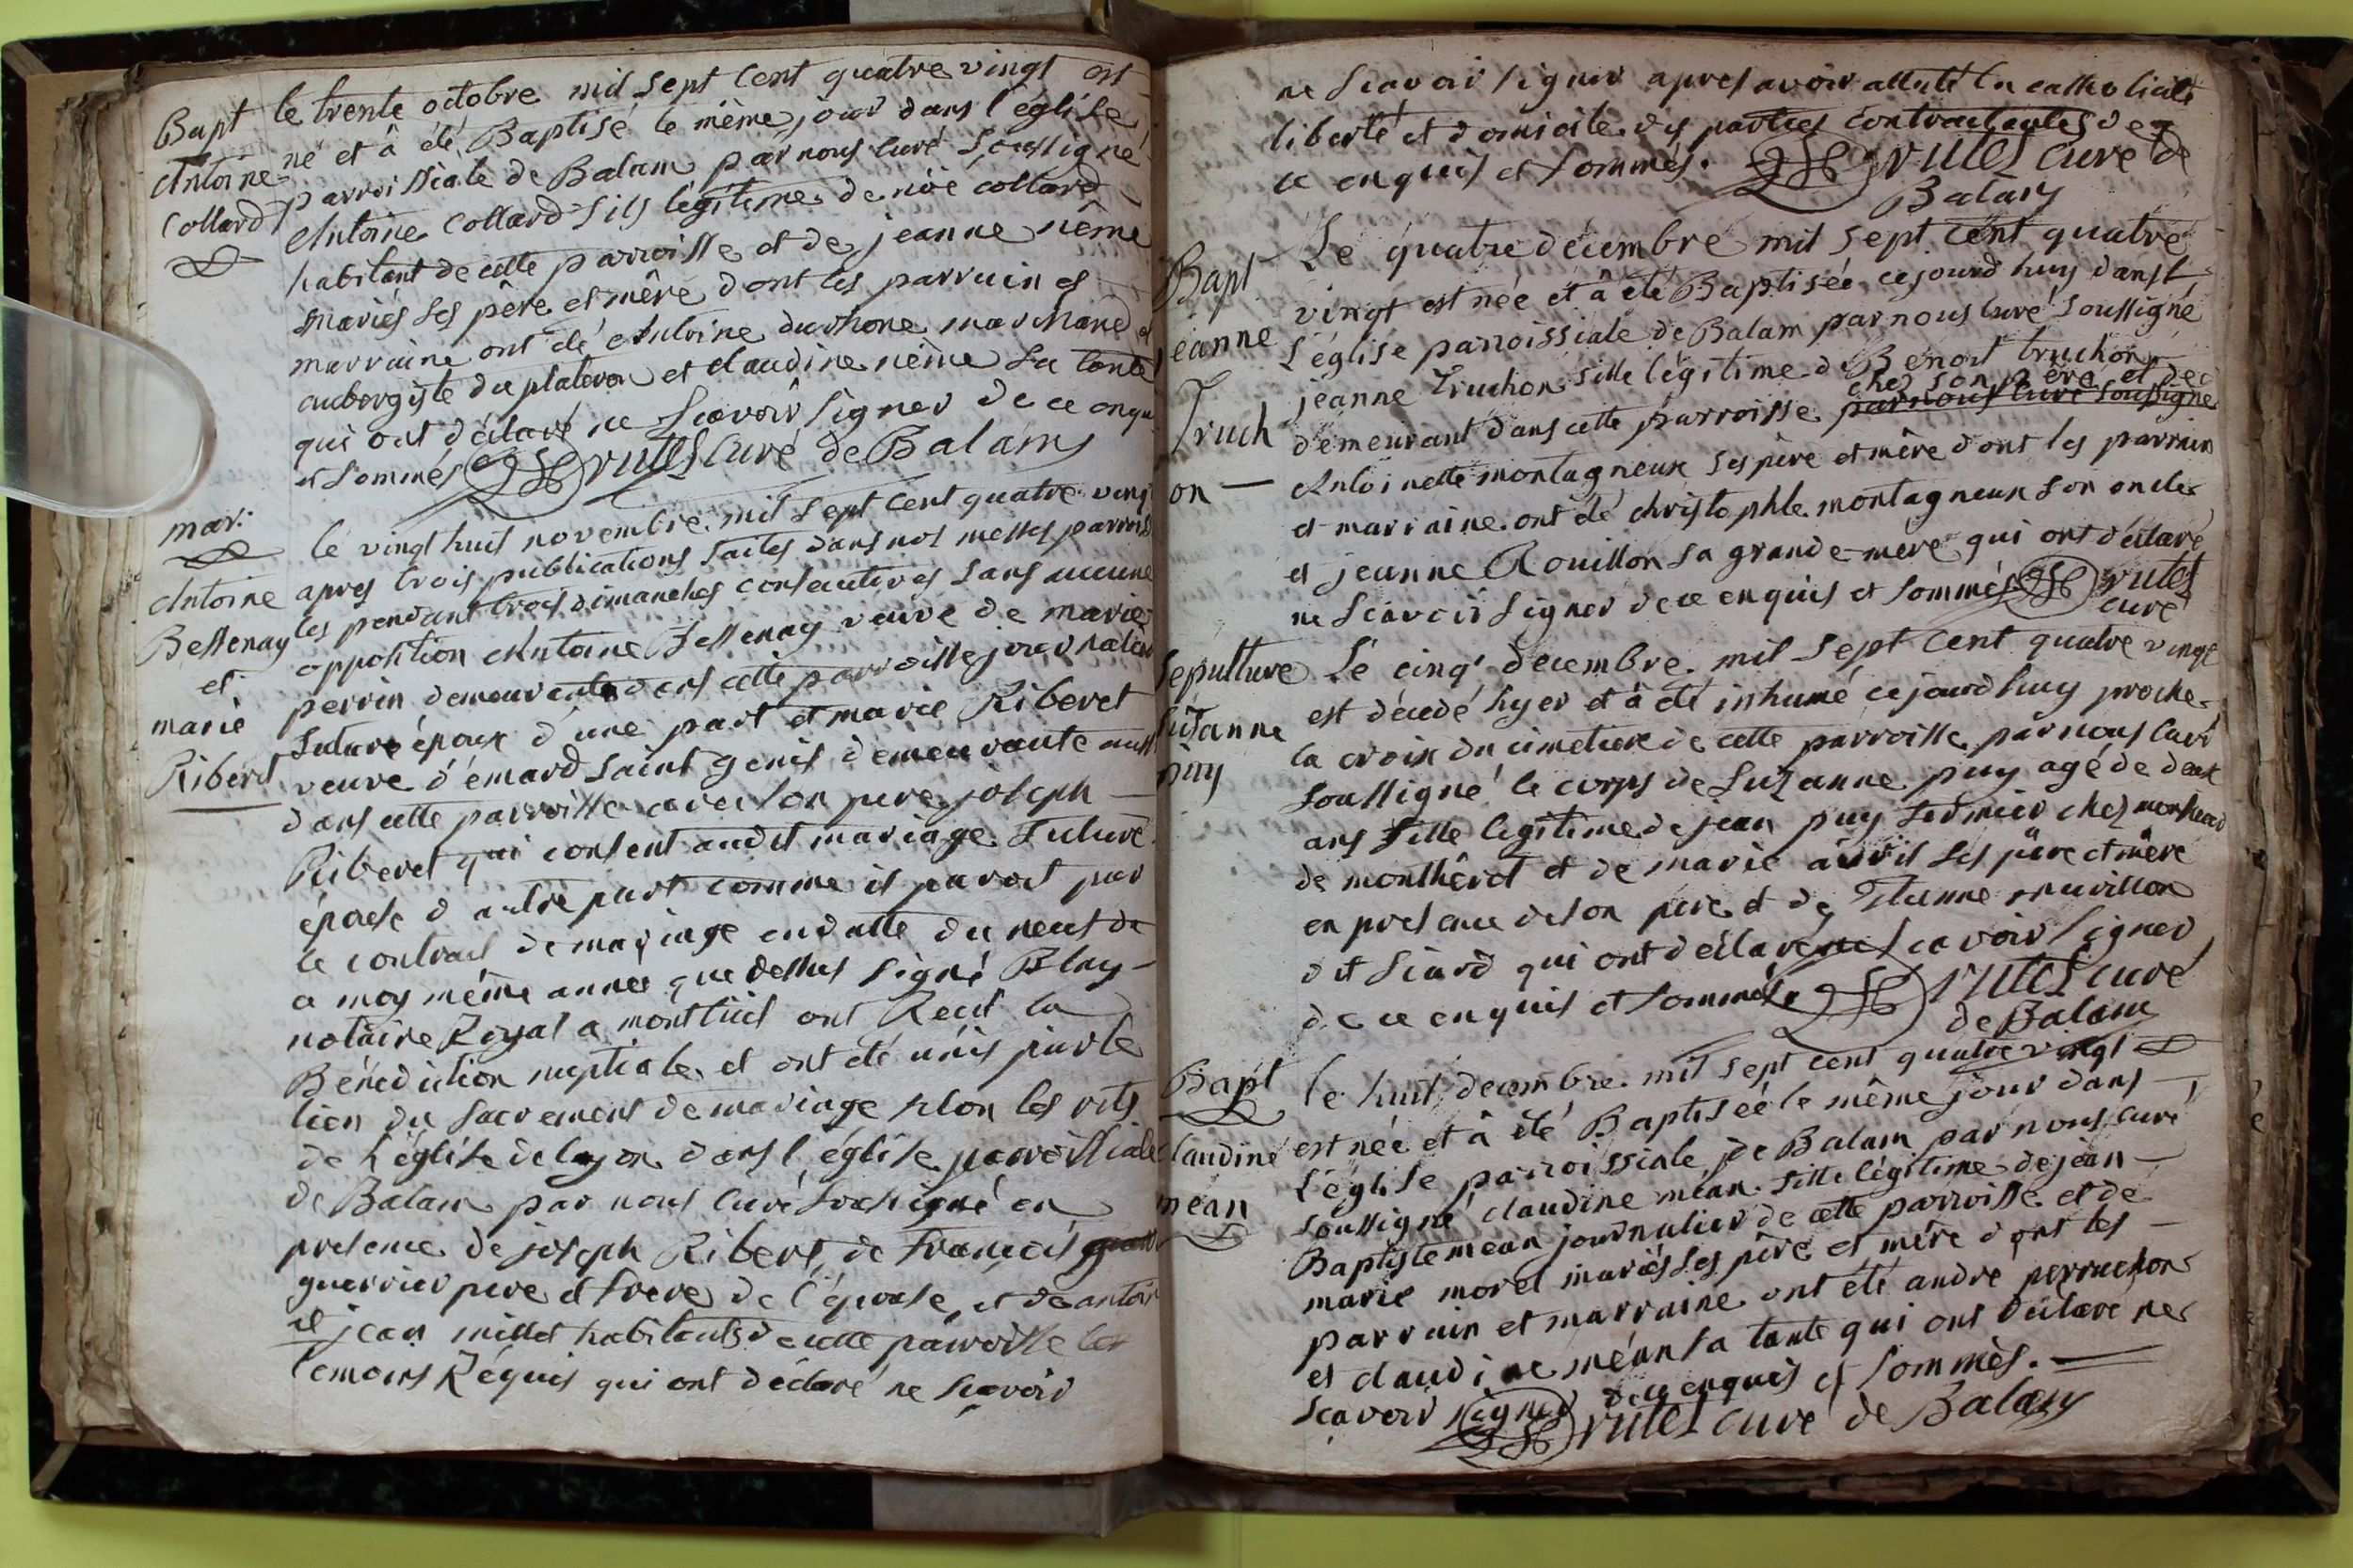 Bapt
Antoine
Collard
le trente octobre mil sept cent quatre vingt est
né et à été Baptisé le même jour dans l'église
parroissiale de Balam par nous curé soussigné
Antoine Collard fils légitime de noë collard
habitant de cette parroisse et de jeanne nême
mariés ses père et mère dont les parrain et
marraine ont été Antoine durhone marchand et
aubergiste du plateron et claudine nême sa tante
qui ont déclaré ne scavoir signer de ce enqu
et sommés rutes curé de Balam
mar:
Antoine
Bessenay
et
marie
Riberet
le vingt huit novembre mil sept cent quatre vingt
apres trois publications faites dans nos messes parrois
les pendant trois dimanches consecutives sans aucune
opposition Antoine Bessenay veuve de marie
perrin demeurante dans cette parroisse journalier
future époux d'une part et marie Riberet
veuve d'émard saint genis demeurante aussi
dans cette parroisse avec son pere joseph
Riberet qui consent audit mariage future
épouse d'autre part comme il paroit par
le contract de mariage en datte du neuf de
ce moy même année que dessus signé Blay
notaire Royal a montluel ont Recut la
Bénédiction nuptiale et ont été unis par le
lien du sacrement de mariage selon les rits
de l'église de lyon dans l'église parroissiale
de Balam par nous curé soussigné en
presence de joseph Riberet, de françois
guerrier pere et frere de l'épouse, et de antoi
et jean millet habitants de cette parroisse les
temoins Réquis qui ont déclaré ne scavoir
ne scavoir signer apres avoir attesté la catholicité
liberté et domicile des parties contractantes de
ce enquis et sommés. rutes curé de
Balam
Bapt
jeanne
Truch
on
Le quatre decembre mil sept cent quatre
vingt est née et à été Baptisée cejourd'huy dans
l'église parroissiale de Balam par nous curé soussigné
jeanne Truchon fille légitime de Benoit truchon
demeurant dans cette parroisse chez son père et de
par nous curé soussigné
Antoinette montagneux ses père et mère dont les parrain
et marraine ont été christophle montagneux son oncle
et jeanne Rouillon sa grande-mère qui ont déclaré
ne scavoir signer de ce enquis et sommés rutes
curé
Sepulture
Suzanne
puy
Le cinq decembre mil sept cent quatre vingt
est décedé hyer et à été inhumé cejourd'huy proche
la croix du cimetiere de cette parroisse par nous curé
soussigné le corps de Suzanne puy agé de deux
ans fille legitime de jean puy fermier chez
de montherot et de marie avril ses père et mère
en presence de son pere et de Etienne
dit siard qui ont déclaré ne scavoir signer
de ce enquis et sommés rutes curé
de Balam
Bapt
claudine
méan
le huit decembre mil sept cent quatre vingt
est née et à été Baptisée le même jour dans
l'église parroissiale de Balam par nous curé
soussigné claudine méan fille légitime de jean
Baptiste mean journalier de cette parroisse et de
marie morel mariés ses père et mère dont les
parrain et marraine ont été andré perruchon
et claudine méan sa tante qui ont déclaré ne
scavoir signer de ce enquis et sommés.
rutes curé de Balam